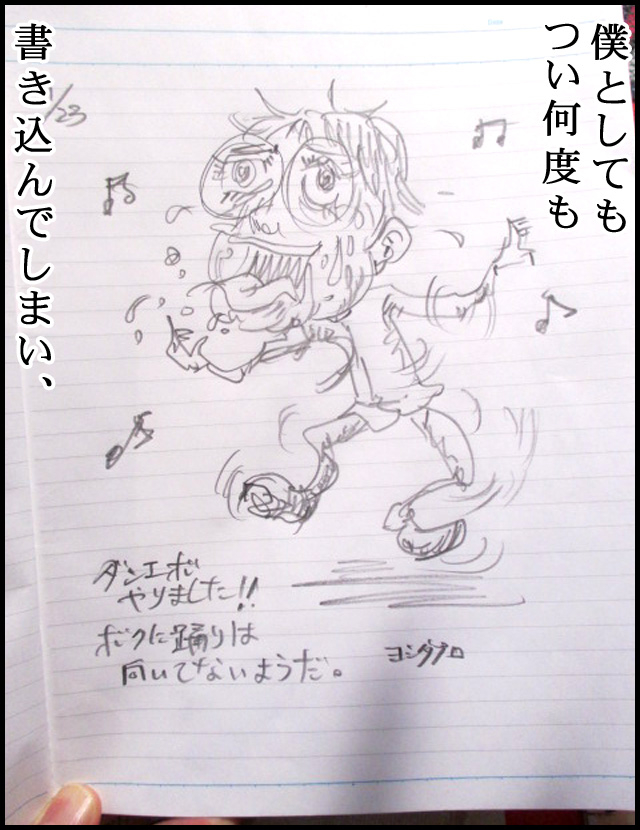 僕としても
つい何度も
書き込んでしまい、
1/23
ダンエボ
やりました!!
ボクに踊りは
向いてないようだ。
ヨシダプロ